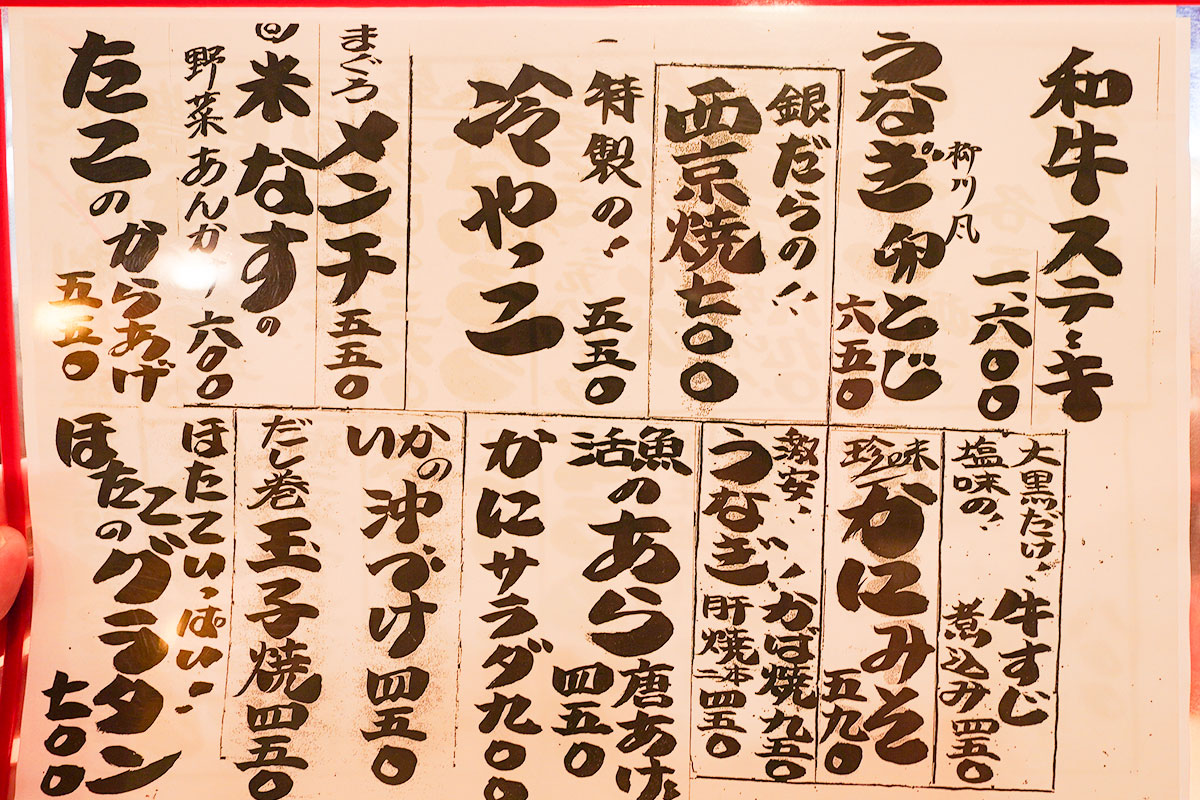 和牛ステーキ
一、六〇〇
柳川風
うなぎ卵とじ
六五〇
銀だらの!!
西京焼七〇〇
特製の!
五五〇
冷やっこ
まぐろ
メンチ
五五〇
米なすの
野菜あんかけ
六〇〇
たこの
からあげ
五五〇
大黒だけ!
牛すじ
塩味の!
煮込み四五〇
珍味
かにみそ
五九〇
激安!!
かば焼九五〇
うなぎ
肝焼二本四五〇
魚の
活あら
唐あげ
四五〇
かにサラダ九〇〇
いかの
沖づけ
四五〇
だし巻
玉子焼
四五〇
ほたていっぱい!
ほたての
グラタン
七〇〇